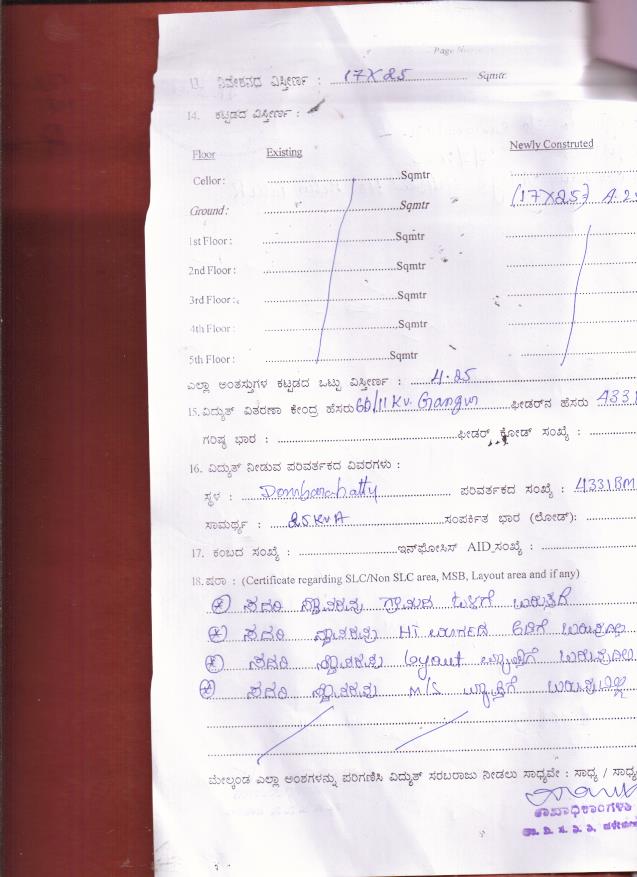 Page No
13. ನಿವೇಶನದ ವಿಸ್ತೀರ್ಣ : 17X25 Sqmtr
14. ಕಟ್ಟಡದ ವಿಸ್ತೀರ್ಣ :
Floor Existing Newly Construted
Cellor: Sqmtr
Ground: Sqmtr (17X25)
1st Floor: Sqmtr
2nd Floor: Sqmtr
3rd Floor: Sqmtr
4th Floor: Sqmtr
5th Floor: Sqmtr
ಎಲ್ಲಾ ಅಂತಸ್ತುಗಳ ಕಟ್ಟಡದ ಒಟ್ಟು ವಿಸ್ತೀರ್ಣ : 4.25
15. ವಿದ್ಯುತ್ ವಿತರಣಾ ಕೇಂದ್ರ ಹೆಸರು 66/11 Kv. Gangur ಫೀಡರ್‌ನ ಹೆಸರು 4331
ಗರಿಷ್ಠ ಭಾರ : ಫೀಡರ್ ಕೋಡ್ ಸಂಖ್ಯೆ :
16. ವಿದ್ಯುತ್ ನೀಡುವ ಪರಿವರ್ತಕದ ವಿವರಗಳು :
ಸ್ಥಳ : ಪರಿವರ್ತಕದ ಸಂಖ್ಯೆ : 4331BM
ಸಾಮರ್ಥ್ಯ : 25 KVA ಸಂಪರ್ಕಿತ ಭಾರ (ಲೋಡ್):
17. ಕಂಬದ ಸಂಖ್ಯೆ : ಇನ್‌ಫೋಸಿಸ್ AID ಸಂಖ್ಯೆ :
18. ಷರಾ : (Certificate regarding SLC/Non SLC area, MSB, Layout area and if any)
ಸದರಿ ಸ್ಥಾವರವು ಗ್ರಾಮದ ಒಳಗೆ ಬರುತ್ತದೆ
ಸದರಿ ಸ್ಥಾವರವು HT
ಸದರಿ ಸ್ಥಾವರವು Layout ವ್ಯಾಪ್ತಿಗೆ ಬರುವುದಿಲ್ಲ
ಸದರಿ ಸ್ಥಾವರವು M/S ವ್ಯಾಪ್ತಿಗೆ ಬರುವುದಿಲ್ಲ
ಮೇಲ್ಕಂಡ ಎಲ್ಲಾ ಅಂಶಗಳನ್ನು ಪರಿಗಣಿಸಿ ವಿದ್ಯುತ್ ಸರಬರಾಜು ನೀಡಲು ಸಾಧ್ಯವೇ : ಸಾಧ್ಯ / ಸಾಧ್ಯ
ಶಾಖಾಧಿಕಾರಿಗಳು